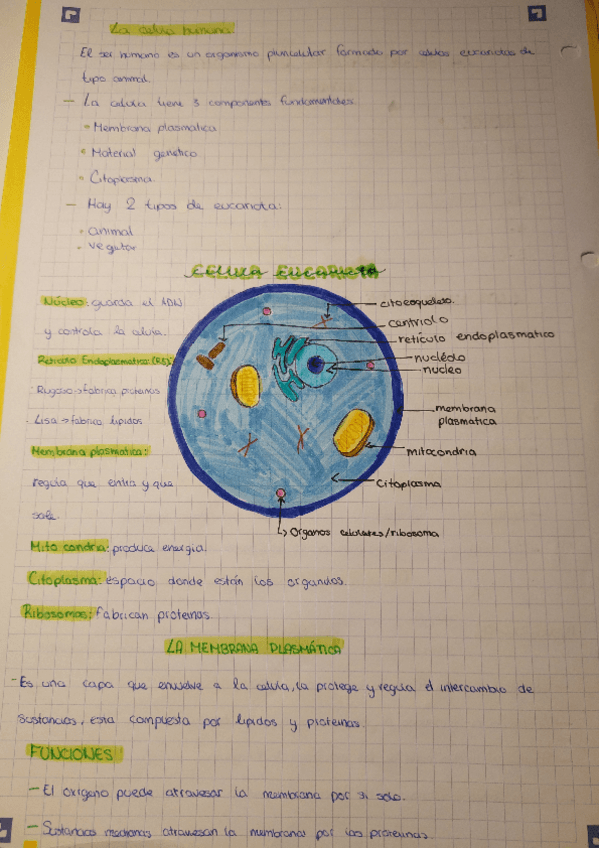 La celula humana.
El ser humano es un organismo pluricelular formado por celulas eucariotas de
tipo animal.
— La celula tiene 3 componentes fundamentales
• Membrana plasmatica
• Material genetico
• Citoplasma
— Hay 2 tipos de eucariota:
• animal
• vegetal
CELULA EUCARIOTA
Núcleo: guarda el ADN
y controla la celula.
Reticulo Endoplasmatico (RE):
Rugoso → fabrica proteinas
Lisa → fabrica lipidos
Membrana plasmatica:
regula que entra y que
sale.
citoesqueleto.
centriolo
retículo endoplasmatico
nucléolo
nucleo
membrana
plasmatica
mitocondria
Citoplasma
Organos celulares/ribosoma
Mitocondria: produce energia.
Citoplasma: espacio donde están los organulos.
Ribosomas: fabrican proteinas.
LA MEMBRANA PLASMÁTICA
- Es una capa que envuelve a la celula, la protege y regula el intercambio de
sustancias, esta compuesta por lipidos y proteinas.
FUNCIONES
— El oxigeno puede atravesar la membrana por si solo.
— Sustancias medianas atraviesan la membrana por las proteinas.